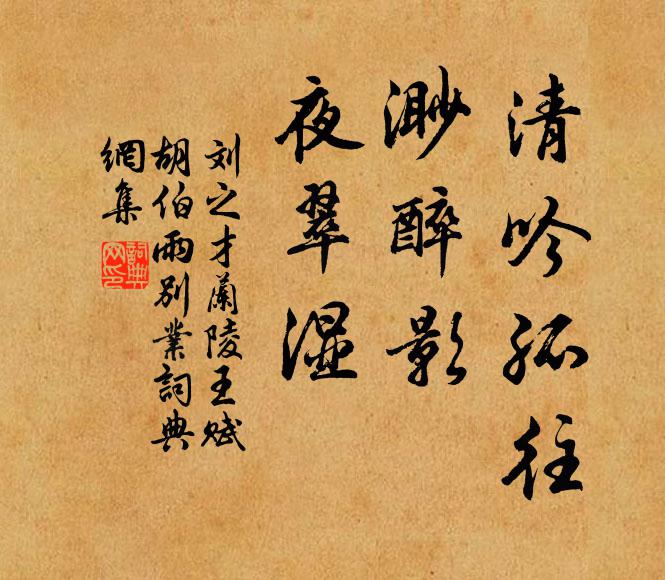 清吟孤往
渺醉影
夜翠湿
刘之才蘭陵王赋
胡伯雨別業詞典
網集
詞典
网印